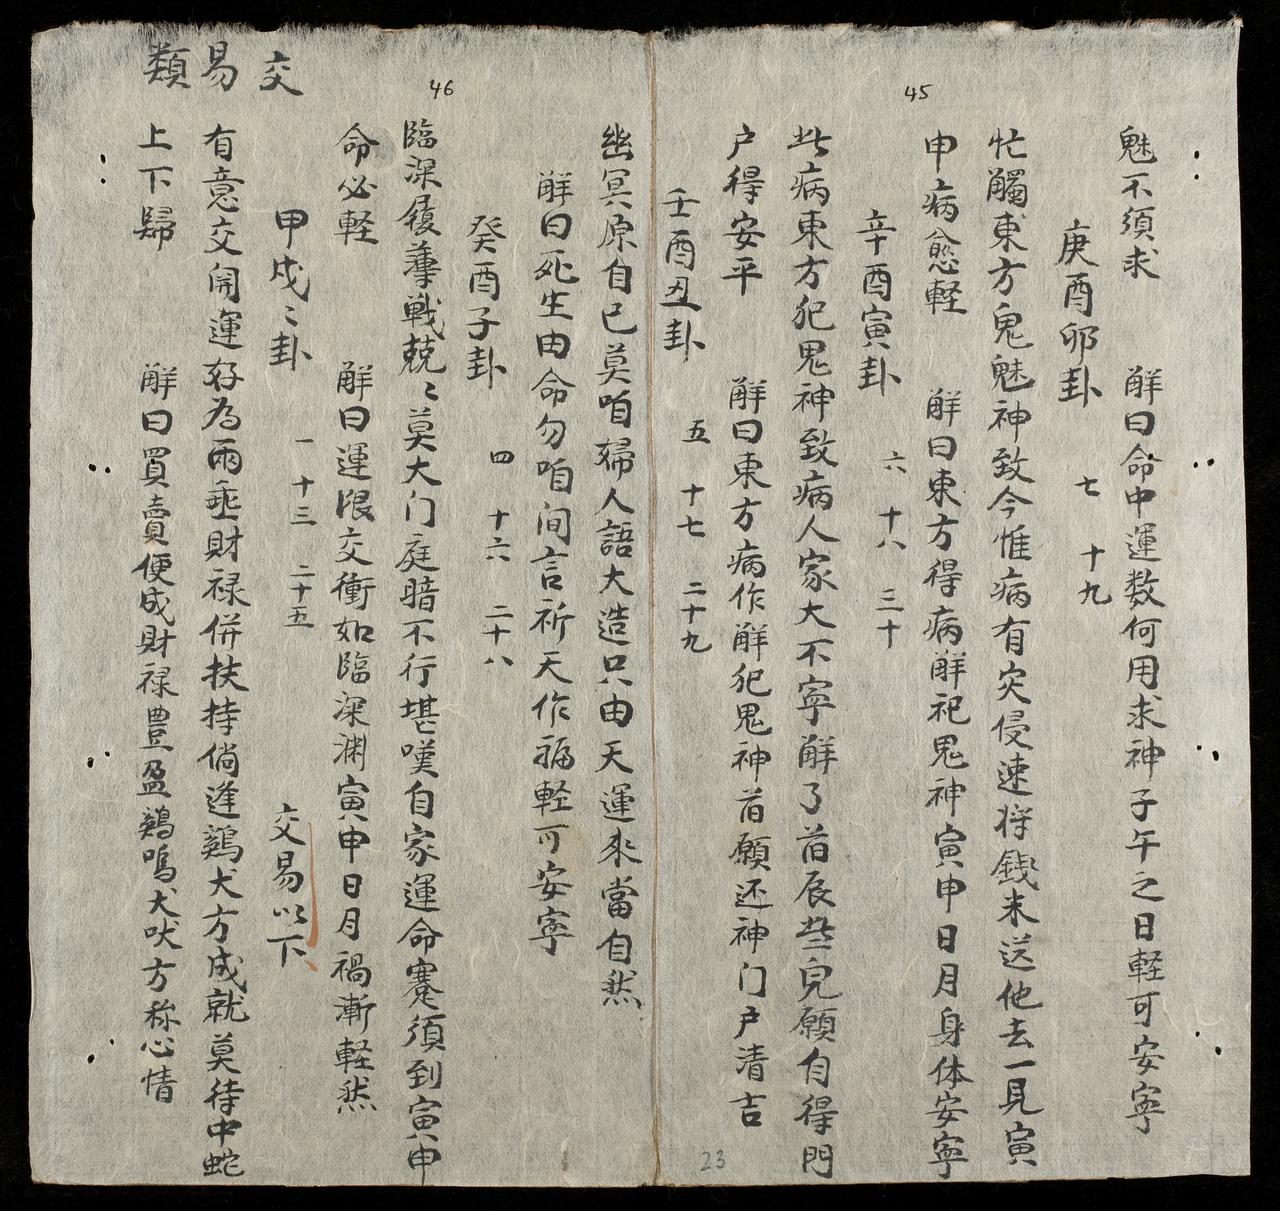 45
魅不須求　解曰命中運数何用求神子午之日軽可安寧
庚酉卯卦　七　十九
忙觸東方鬼魅神致今惟病有灾侵速将錢米送他去一見寅
申病愈軽　解曰東方得病解祀鬼神寅申日月身体安寧
辛酉寅卦　六　十八　三十
此病東方犯鬼神致病人家大不寧解了昔辰些兒願自得門
户得安平　解曰東方病作解犯鬼神昔願还神门户清吉
壬酉丑卦　五　十七　二十九
23
46
幽冥原自已莫咱婦人語大造只由天運來當自然
解曰死生由命勿咱间言祈天作福軽可安寧
癸酉子卦　四　十六　二十八
臨深履薄戦兢〻莫大门庭暗不行堪嘆自家運命蹇須到寅申
命必軽　解曰運限交衝如臨深渊寅申日月禍漸軽然
甲戌〻卦　一　十三　二十五　交易以下
交易類
有意交開運好為兩垂財禄併扶持倘逢鷄犬方成就莫待中蛇
上下歸　解曰買賣便成財禄豊盈鷄鳴犬吠方称心情